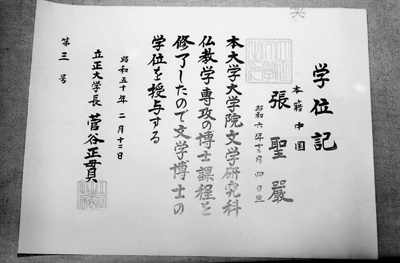 学位記
本籍 中国
張聖嚴
昭和六年十二月四日生
本大学大学院文学研究科
仏教学専攻の博士課程を
修了したので文学博士の
学位を授与する
昭和五十年二月十二日
立正大学長 菅谷正貫
第三号